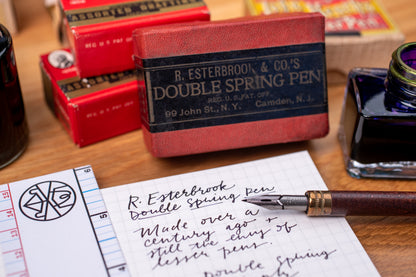 ASSORTED
REG. U.S. PAT. OFF.
R. ESTERBROOK & CO.'S
DOUBLE SPRING PEN
REG. U.S. PAT. OFF.
99 John St., N.Y. Camden, N.J.
R. Esterbrook
Double Spring Pen
Made over a
century ago +
still the envy of
lesser pens.
Double Spring